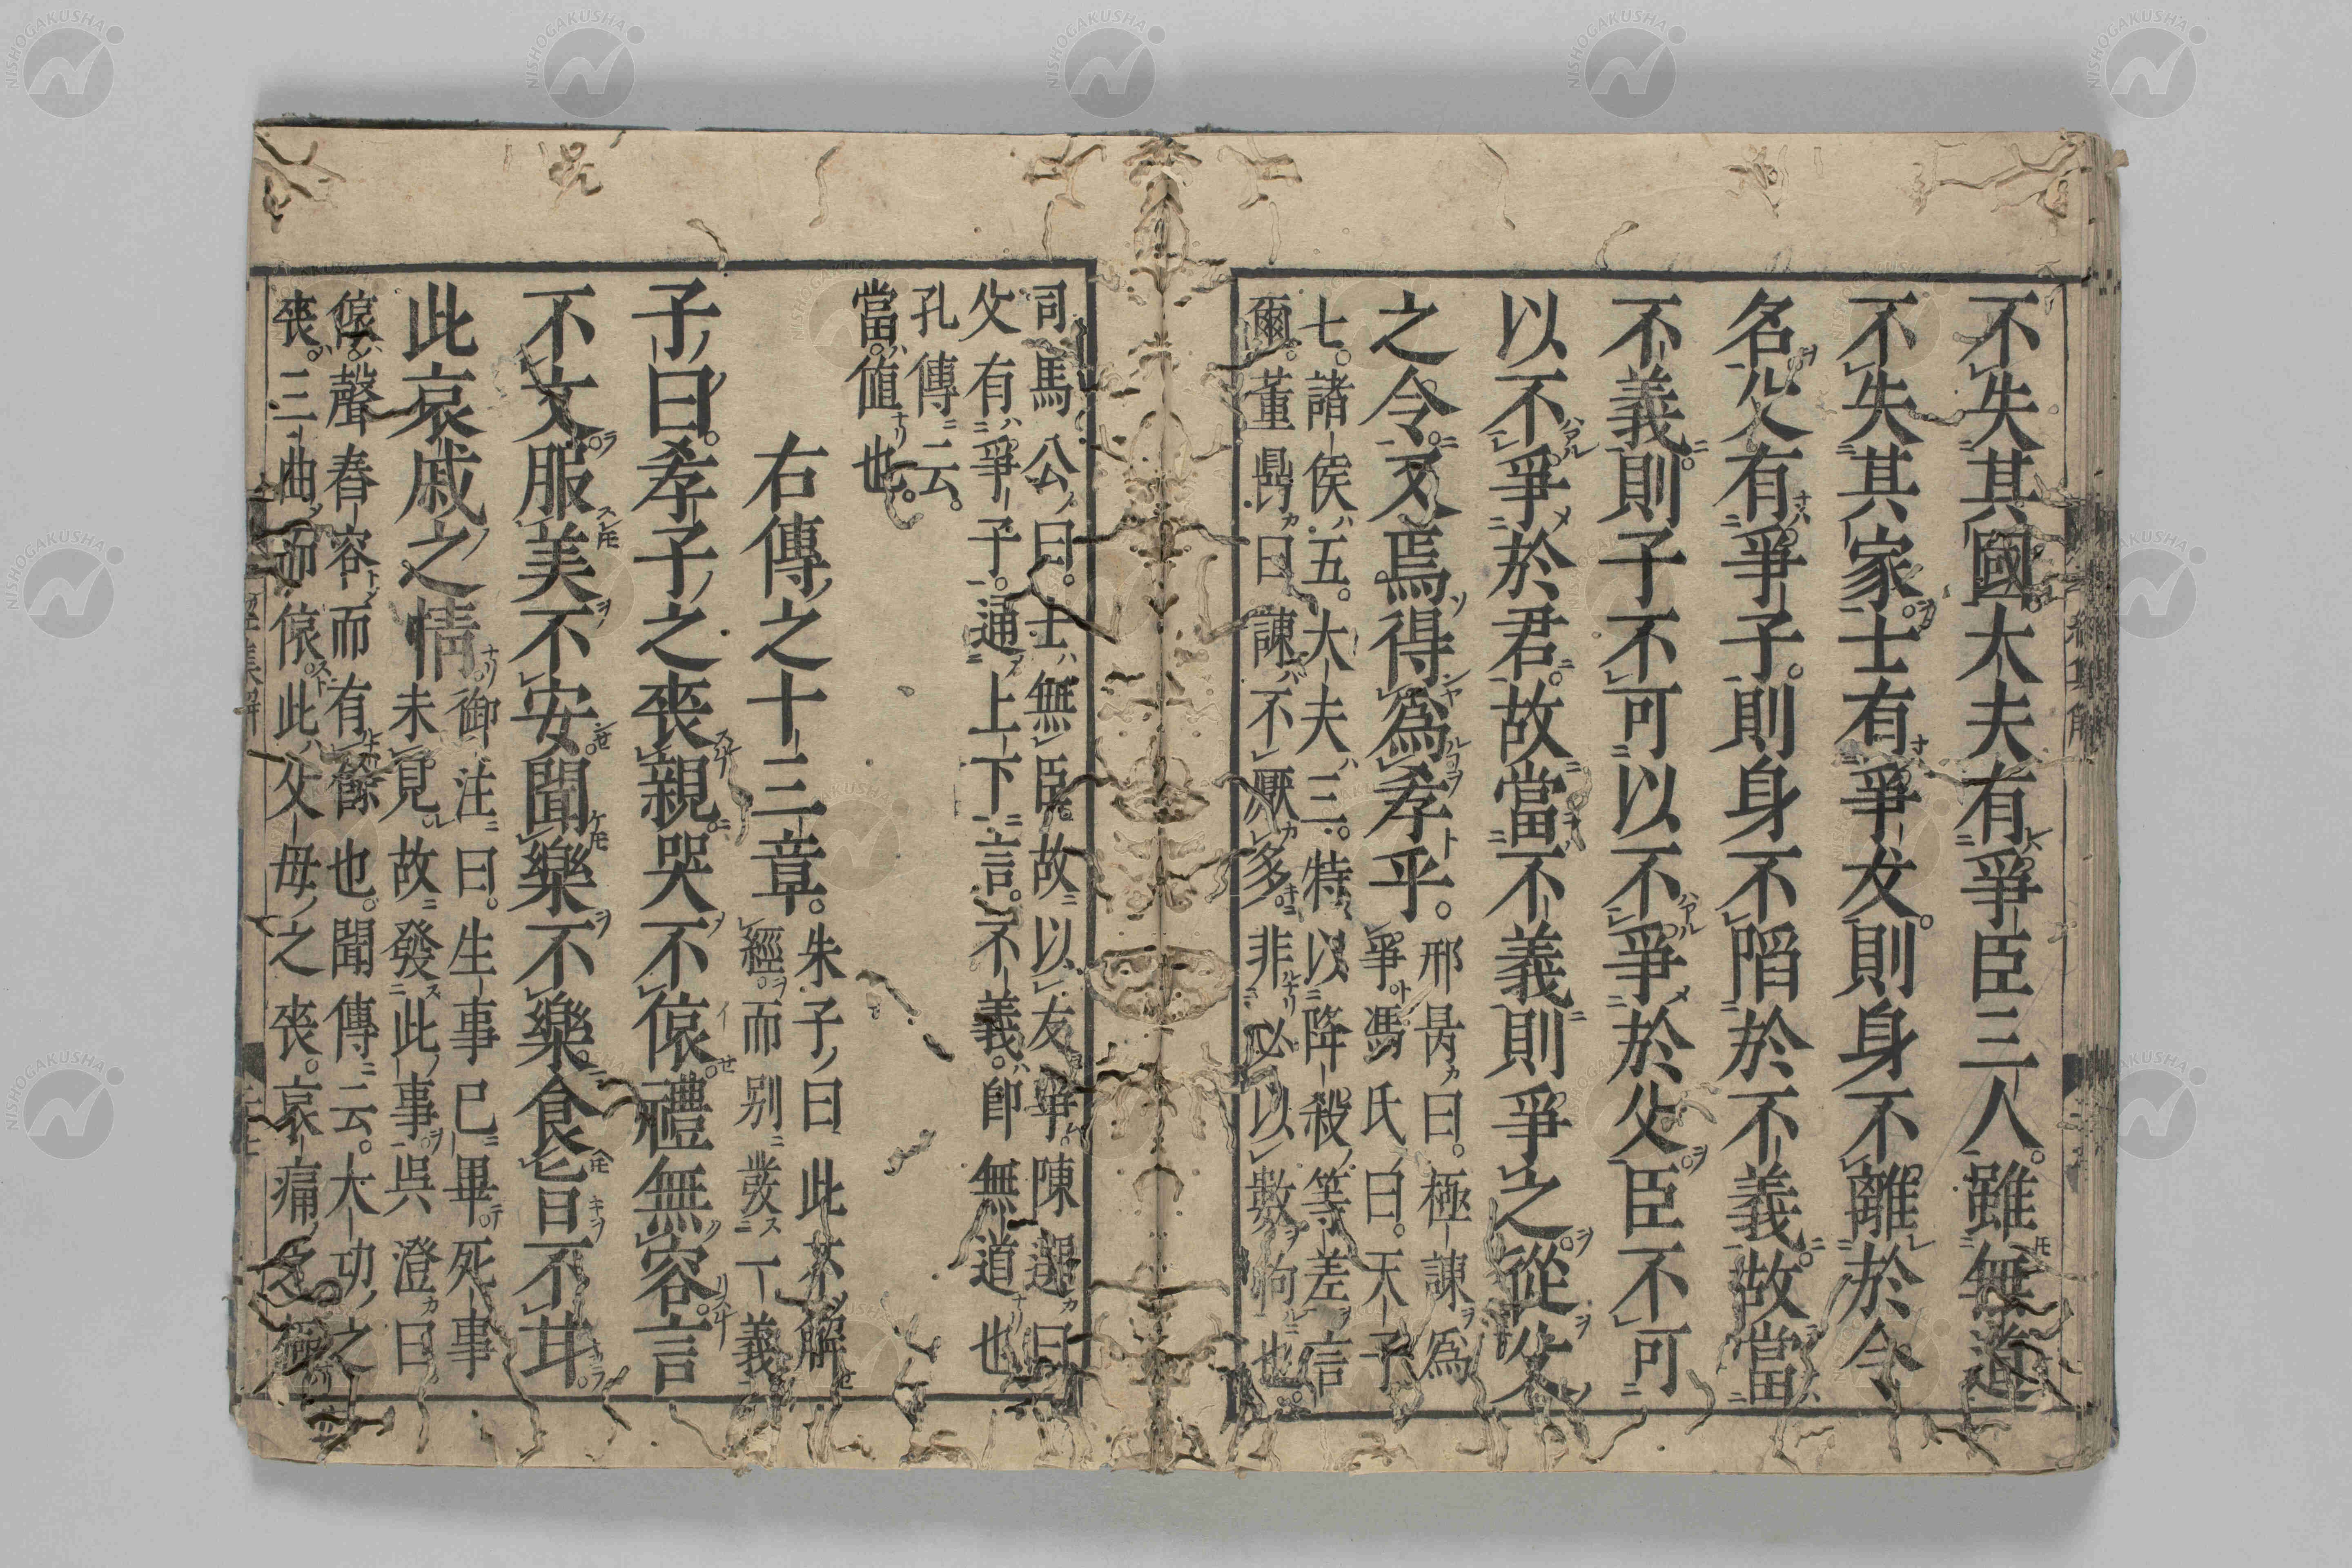 不失其國。大夫有爭臣三人。雖無道
不失其家。士有爭友。則身不離於令
名。父有爭子。則身不陷於不義。故當
不義。則子不可以不爭於父。臣不可
以不爭於君。故當不義則爭之。從父
之令。又焉得爲孝乎。
邢昺曰。極諫爲
爭。馮氏曰。天子
七。諸侯五。大夫三。特以降殺等差言
爾。董鼎曰諫不厭多。非必以數拘也。
司馬公曰。士無臣故以友爭。陳選曰
父有爭子。通上下言。不義。卽無道也
孔傳云。
當。値也。
右傳之十三章。
朱子曰此不解
經。而別發一義
子曰。孝子之喪親。哭不偯。禮無容。言
不文。服美不安。聞樂不樂。食旨不甘。
此哀戚之情。
御注曰。生事已畢。死事
未見。故發此事。吳澄曰
偯。聲舂容而有餘也。聞傳云。大功之
喪。三曲而偯。此父母之喪。哀痛之極
NISHOGAKUSHA